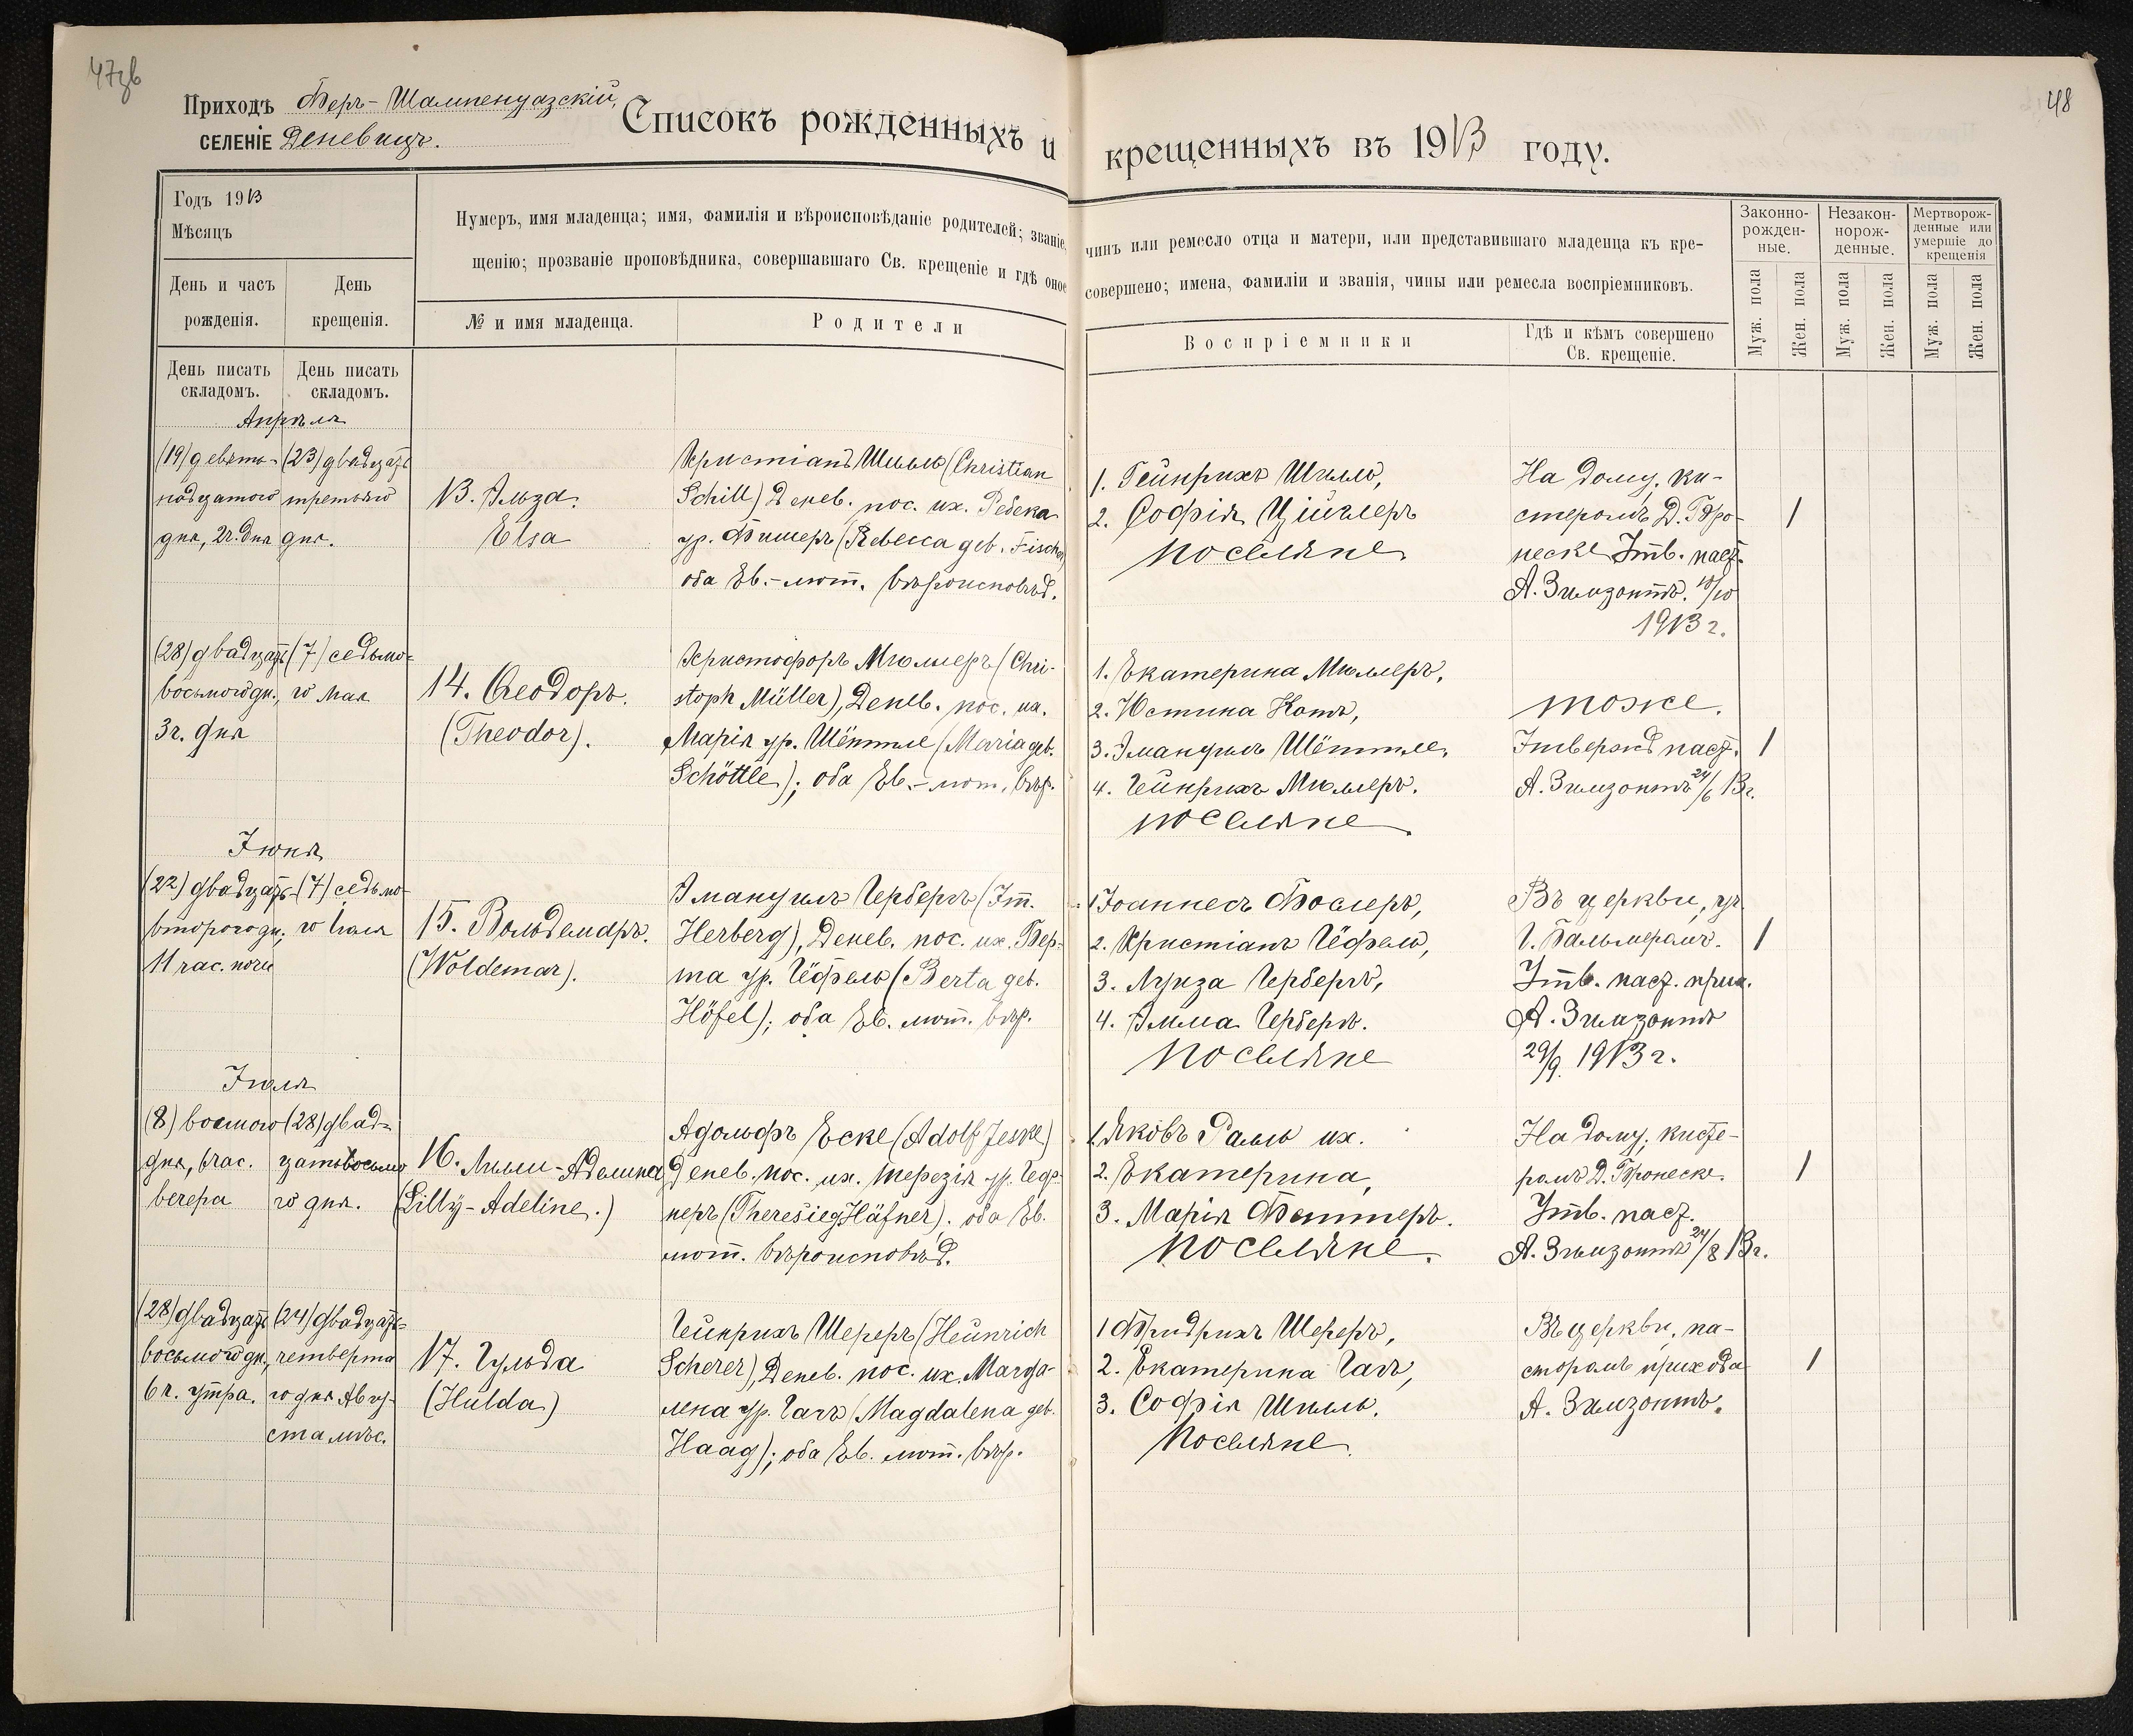 47об
48
Приходъ Феръ-Шампенуазскій,
СЕЛЕНІЕ Деневицъ.
Списокъ рожденныхъ и крещенныхъ въ 1913 году.
Годъ 1913
Мѣсяцъ
День и часъ рожденія.
День крещенія.
Нумеръ, имя младенца; имя, фамилія и вѣроисповѣданіе родителей; званіе, чинъ или ремесло отца и матери, или представившаго младенца къ кре-
щенію; прозваніе проповѣдника, совершавшаго Св. крещеніе и гдѣ оное совершено; имена, фамиліи и званія, чины или ремесла воспріемниковъ.
№ и имя младенца.
Родители
Воспріемники
Гдѣ и кѣмъ совершено
Св. крещеніе.
Законно-
рожден-
ные.
Незакон-
норож-
денные.
Мертворож-
денные или
умершіе до
крещенія
Муж. пола
Жен. пола
Муж. пола
Жен. пола
Муж. пола
Жен. пола
День писать
складомъ.
День писать
складомъ.
Апрѣля
(19) девят-
надцатого
дня, 2ч. дня
(23) двадцать
третьяго
дня.
13. Эльза.
Elsa
Христіанъ Шилль (Christian
Schill) Денев. пос. их. Ребека
ур. Фишеръ (Rebecca geb. Fischer)
оба Ев.-лют. вѣроисповѣд.
1. Гейнрихъ Шилль,
2. Софія Ційглеръ
поселяне
На дому, ки-
стеромъ Д. Бро-
неске Утв. паст.
А. Зильзонтъ. 10/10
1913 г.
1
(28) двадцать
восьмого дн.,
3ч. дня
(7) седьмо-
го мая
14. Ѳеодоръ.
(Theodor).
Христофоръ Мюллеръ (Chri-
stoph Müller), Денев. пос. их.
Марія ур. Шёттле (Maria geb.
Schöttle); оба Ев.-лют. вѣр.
1. Екатерина Мюллеръ,
2. Юстина Котъ,
3. Эмануилъ Шёттле,
4. Гейнрихъ Мюллеръ.
поселяне
тоже.
Утвержд паст.
А. Зильзонтъ 24/6 13г.
1
Іюня
(22) двадцать
второго дн.,
11 час. ночи
(7) седьмо-
го іюля
15. Вольдемаръ.
(Woldemar).
Эмануилъ Гербергъ (Im.
Herberg), Денев. пос. их. Бер-
та ур. Гёфель (Berta geb.
Höfel); оба Ев. лют. вѣр.
1 Іоаннесъ Фослеръ,
2. Христіанъ Гёфель,
3. Луиза Гербергъ,
4. Эмма Гербергъ.
поселяне
Въ церкви, уч.
І. Бальмеромъ.
Утв. паст. прих.
А. Зильзонтъ
29/9 1913 г.
1
Іюля
(8) восьмого
дня, 6 час.
вечера
(28) двад-
цатьвосьмо
го дня.
16. Лилли-Аделина
(Lilly-Adeline.)
Адольфъ Еске (Adolf Jeske)
Денев. пос. их. Терезія ур. Геф-
неръ (Theresie g. Häfner). оба Ев.
лют. вѣроисповѣд.
1. Яковъ Ралль их.
2. Екатерина,
3. Марія Феттеръ.
поселяне.
На дому, кисте-
ромъ Д. Бронеске.
Утв. паст.
А. Зильзонтъ 24/8 13г.
1
(28) двадцать
восьмого дн.,
6 ч. утра.
(24) двадцать
четверта
го дня Авгу-
ста мѣс.
17. Гульда
(Hulda)
Гейнрихъ Шереръ (Heinrich
Scherer), Денев. пос. их. Магда-
лена ур. Гагъ (Magdalena geb.
Haag); оба Ев. лют. вѣр.
1 Фридрихъ Шереръ,
2. Екатерина Гагъ,
3. Софія Шилль.
поселяне.
Въ церкви, па-
сторомъ прихода
А. Зильзонтъ.
1